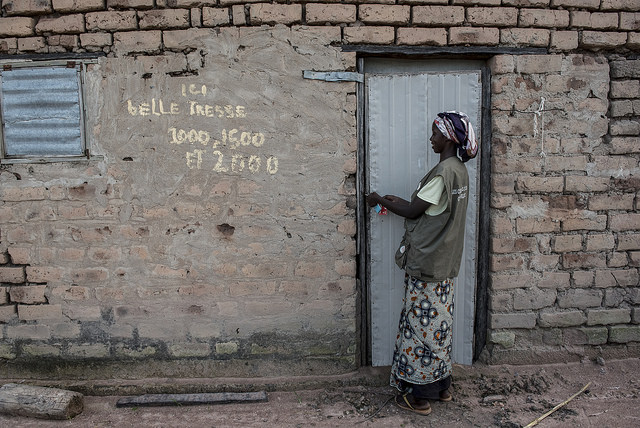 ICI
bELLE TRESSE
1000, 1500
ET 2000